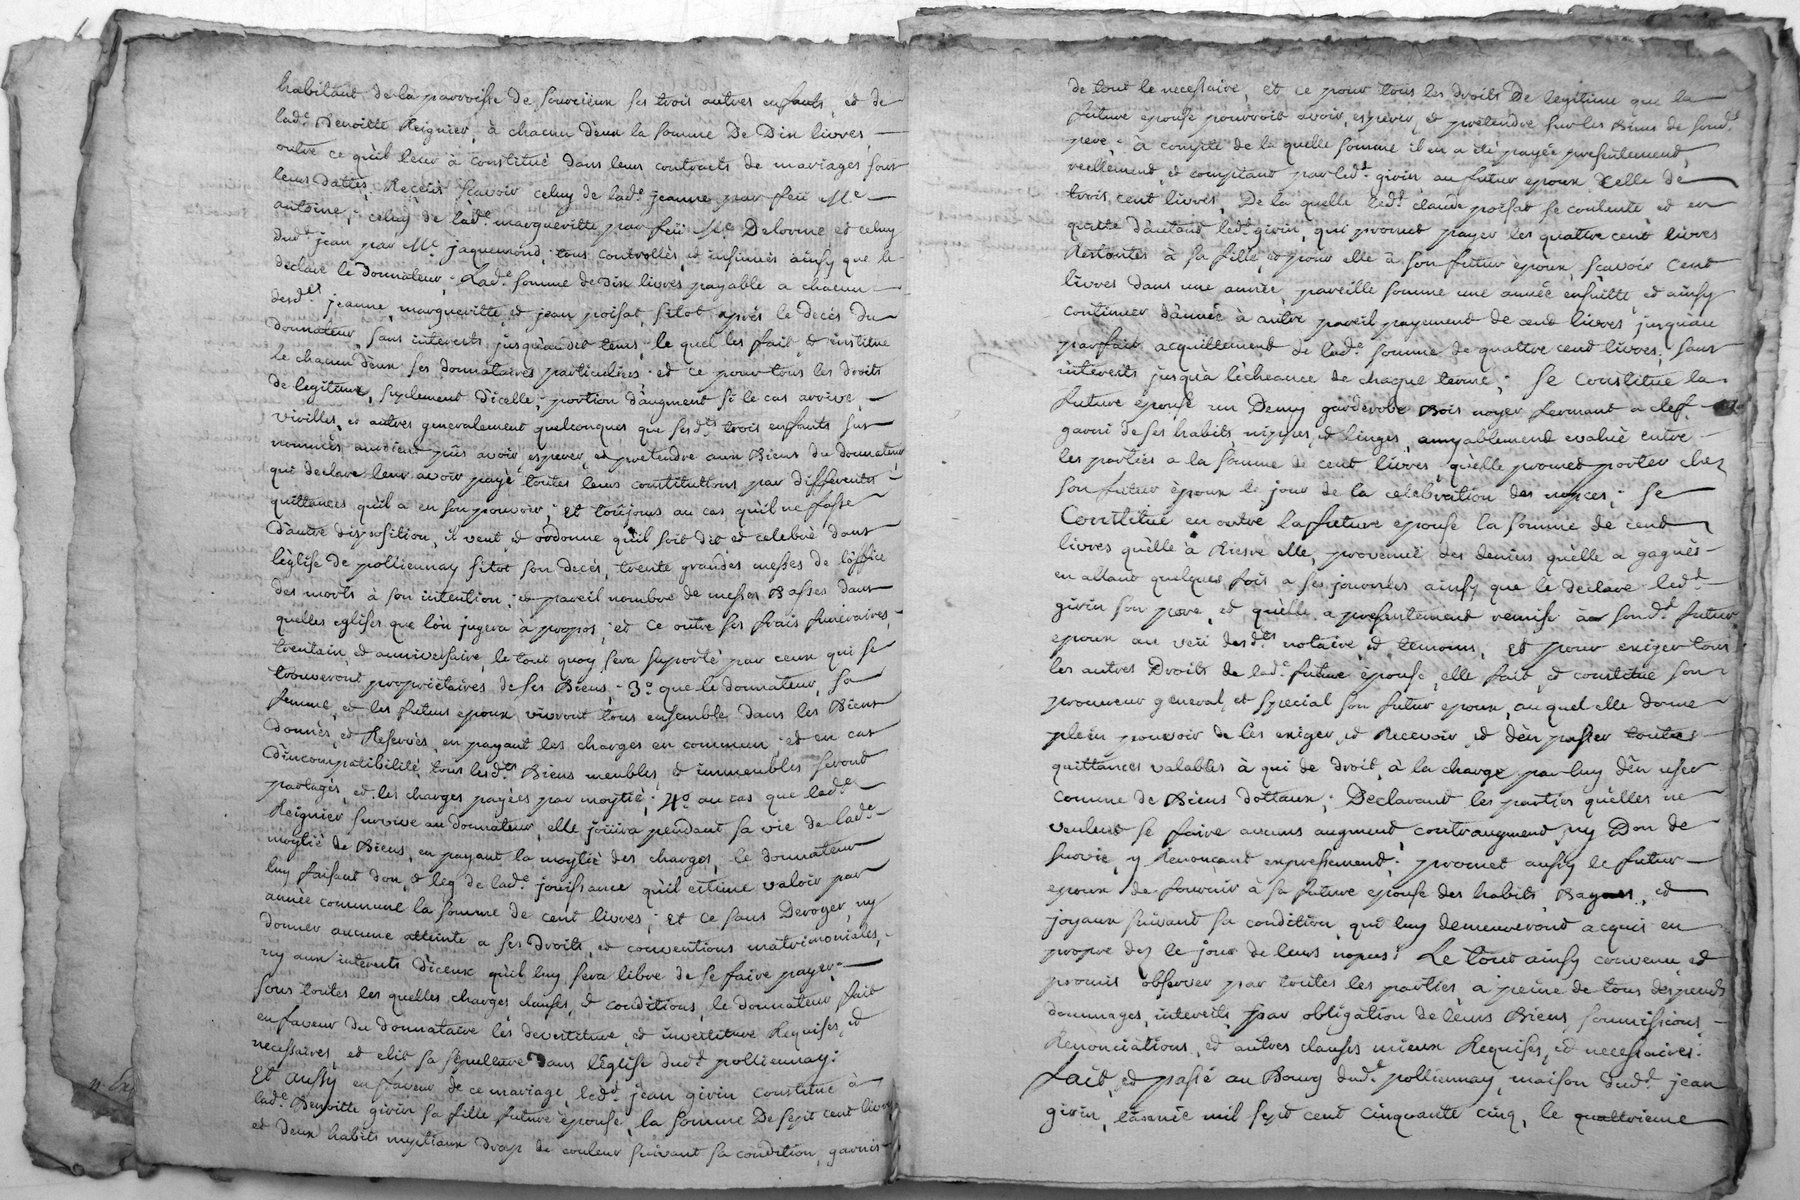 habitant de la parroisse de Sourcieux ses trois autres enfants, et de
lad.e Benoitte Reignier, à chacun d'eux la somme De Dix livres
outre ce qu'il leur à constitué dans leurs contracts de mariages sous
leurs dattes, Receus sçavoir celuy de lad.e jeanne par feü M.e
antoine, celuy de lad.e margueritte par feü M.e Delorme et celuy
dud.t jean par M.e jaquemond, tous controllés, et insinués ainsy que le
declare le Donnateur; Lad.e somme de dix livres payable a chacun
desd.ts jeanne, margueritte, et jean poisat, sitot aprés le decés du
donnateur, sans interests jusqu'audit tems, le quel les fait, et institue
le chacun d'eux ses donnataires particuliers; et ce pour tous les droits
de legitime, suplement d'icelle, portion d'augment si le cas arrive,
virilles, et autres generalement quelconques que sesd.ts trois enfants sus
nommés, auroient pûs avoir, esperer, et pretendre aux Biens du donnateur,
qui declare leur avoir payé toutes leurs constitutions par differentes
quittances qu'il a en son pouvoir; et toujours au cas qu'il ne fasse
d'autre disposition, il veut, et ordonne qu'il soit dit et celebré dans
l'église de polliennay sitot son decés, trente grandes messes de l'office
des morts à son intention, et pareil nombre de messes Basses dans
quelles eglises que l'on jugera à propos, et ce outre ses frais funeraires,
trentain, et anniversaire, le tout quoy sera suporté par ceux qui se
trouveront propriétaires de ses Biens; 3.o que le donnateur, sa
femme, et les futurs epoux, vivront tous ensembles dans les Biens
donnés, et Reservés, en payant les charges en commun; et en cas
d'incompatibilité, tous lesd.ts Biens meubles, et immeubles seront
partagés, et les charges payées par moytié; 4.o au cas que lad.e
Reignier survive au donnateur, elle joüira pendant sa vie de lad.e
moytié de Biens, en payant la moytié des charges, le donnateur
luy faisant don, et leg de lad.e jouissance qu'il estime valoir par
année commune la somme de cent livres; et ce sans Deroger, ny
donner aucune atteinte a ses droits, et conventions matrimoniales,
ny aux interests d'iceux qu'il luy sera libre de se faire payer;
sous toutes les quelles charges, clauses, et conditions, le donnateur fait
en faveur du donnataire les devestiture, et investiture Requises, et
necessaires, et elit sa sépulture dans l'Eglise dud.t polliennay:
Et aussy en faveur de ce mariage led.t jean givin constitue à
lad.e Benoitte givin sa fille future épouse, la somme De sept cent livres
et deux habits nuptiaux drap de couleur suivant sa condition, garnis
de tout le necessaire, et ce pour tous les droits De legitime que la
future epouse pourroit avoir, esperer, et pretendre sur les Biens de sond.t
pere; a compte de la quelle somme il en a été payée presentement,
reellement, et comptant par led.t givin au futur epoux celle de
trois cent livres, De la quelle led.t claude poisat se contente, et en
quitte d'autant led.t givin, qui promet payer les quattre cent livres
Restantes à sa fille, et pour elle à son futur époux, sçavoir cent
livres dans une année, pareille somme une année ensuitte, et ainsy
continuer d'année à autre pareil payement de cent livres jusqu'au
parfait acquittement de lad.e somme de quattre cent livres, sans
interests jusqu'a l'écheance de chaque terme; Se constitue la
future epouse un Demy garderobe Bois noyer fermant a clef,
garni de ses habits, nippes, et linges, amyablement evalué entre
les parties a la somme de cent livres, qu'elle promet porter chez
son futur époux le jour de la celebration des nopces; se
Constitue en outre la future epouse la somme de cent
livres qu'elle à Riere elle, provenüe des deniers qu'elle a gagnés
en allant quelques fois a ses journées ainsy que le declare led.t
givin son pere, et qu'elle a presentement remise à sond.t futur
epoux au veü desd.ts notaire, et temoins, Et pour exiger tous
les autres Droits de lad.e future épouse, elle fait, et constitue son
procureur general, et special son futur epoux, au quel elle donne
plein pouvoir de les exiger, et Recevoir, et d'en passer toutes
quittances valables à qui de droit, à la charge par luy d'en user
comme de Biens dottaux; Declarant les parties qu'elles ne
veulent se faire aucuns augment, contraugment, ny Don de
survie, y Renonçant expressement; promet aussy le futur
epoux de fournir à sa future epouse des habits, Bagues, et
joyaux suivant sa condition, qui luy demeureront acquis en
propre dez le jour de leurs nopces: Le tout ainsy convenu, et
promis observer par toutes les parties, à peine de tous depends
dommages, interests, par obligation de leurs Biens, soumissions,
Renonciations, et autres clauses mieux Requises, et necessaires:
fait, et passé au Bourg dud.t polliennay, maison dud.t jean
givin, l'année mil sept cent cinquante cinq, le quattrieme